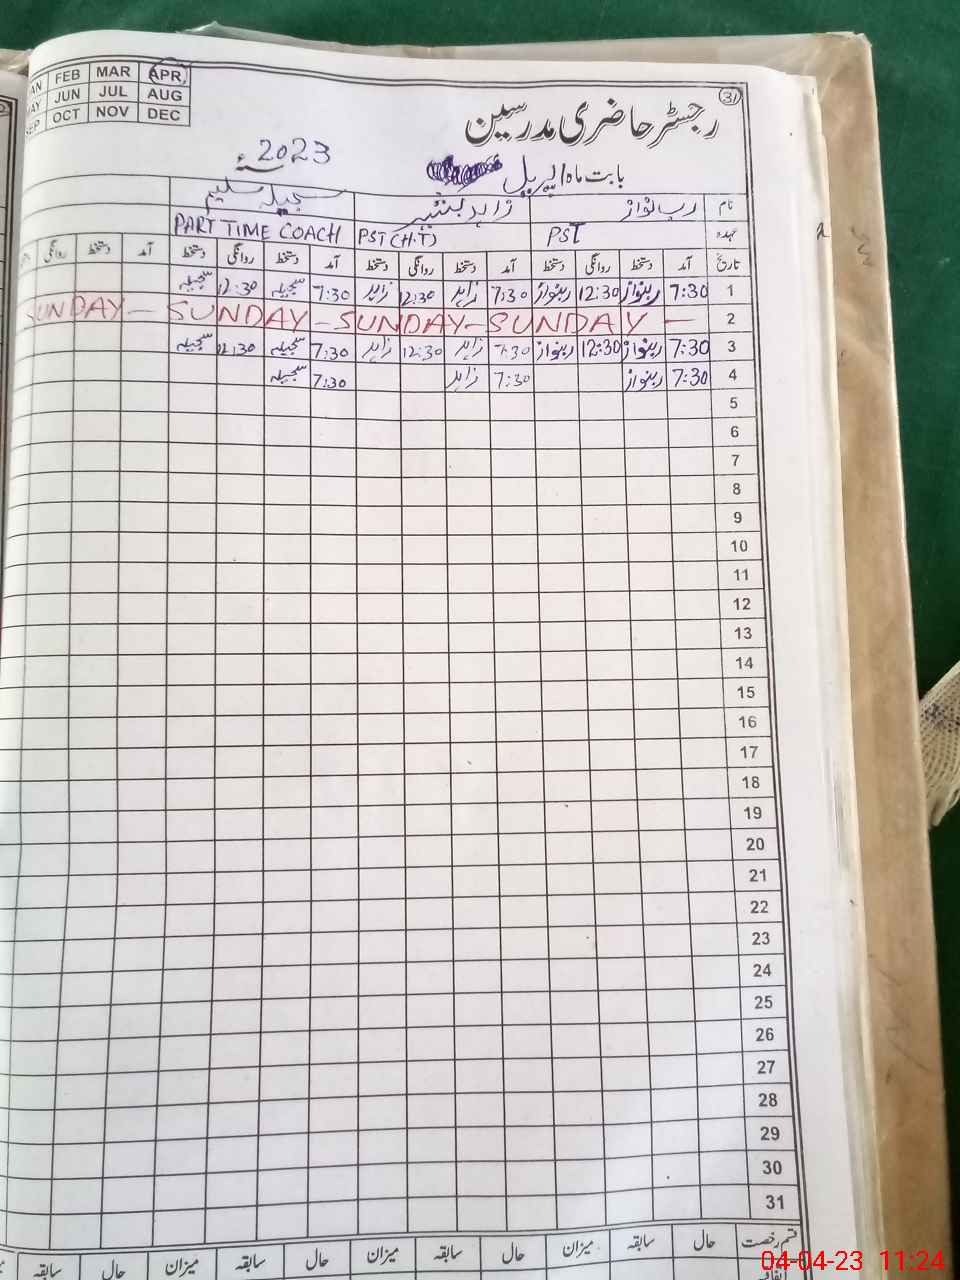 JAN FEB MAR APR
MAY JUN JUL AUG
SEP OCT NOV DEC
31
رجسٹر حاضری مدرسین
2023ء
بابت ماہ اپریل
نام رب نواز زاہد سجیلہ سلیم
عہدہ PST PST (H.T) PART TIME COACH
تاریخ آمد دستخط روانگی دستخط آمد دستخط روانگی دستخط آمد دستخط روانگی دستخط آمد دستخط روانگی
1 7:30 ربنواز 12:30 ربنواز 7:30 زاہد 12:30 زاہد 7:30 سجیلہ 12:30 سجیلہ
2 SUNDAY — SUNDAY — SUNDAY — SUNDAY —
3 7:30 ربنواز 12:30 ربنواز 7:30 زاہد 12:30 زاہد 7:30 سجیلہ 12:30 سجیلہ
4 7:30 ربنواز 7:30 زاہد 7:30 سجیلہ
5
6
7
8
9
10
11
12
13
14
15
16
17
18
19
20
21
22
23
24
25
26
27
28
29
30
31
قسم رخصت حال سابقہ میزان حال سابقہ میزان حال سابقہ میزان حال سابقہ
04-04-23 11:24